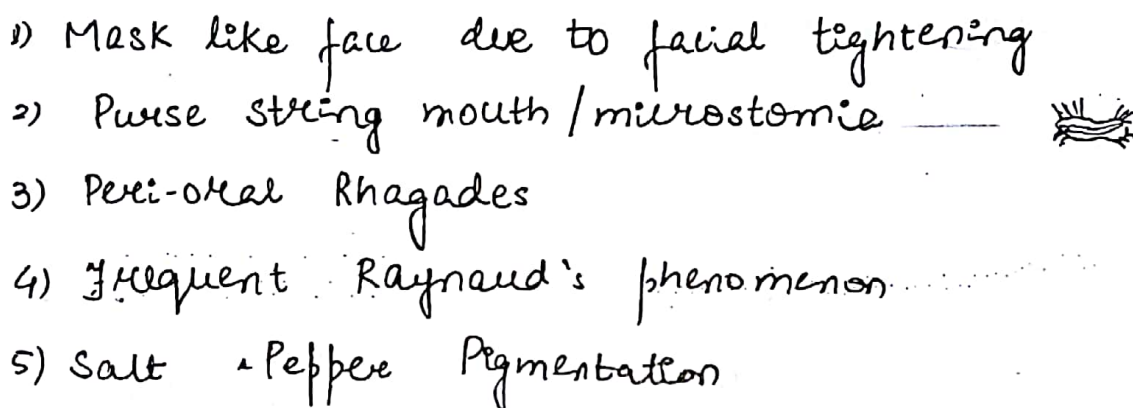 1) Mask like face due to facial tightening
2) Purse string mouth / microstomia
3) Peri-oral Rhagades
4) Frequent Raynaud's phenomenon
5) Salt & Pepper Pigmentation